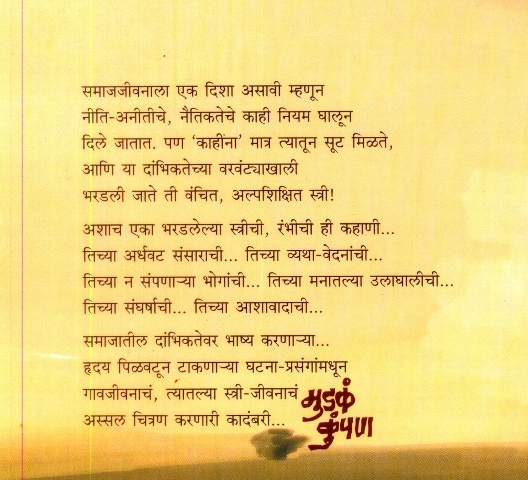 समाजजीवनाला एक दिशा असावी म्हणून
नीति-अनीतीचे, नैतिकतेचे काही नियम घालून
दिले जातात. पण ‘काहींना’ मात्र त्यातून सूट मिळते,
आणि या दांभिकतेच्या वरवंट्याखाली
भरडली जाते ती वंचित, अल्पशिक्षित स्त्री!
अशाच एका भरडलेल्या स्त्रीची, रंभीची ही कहाणी...
तिच्या अर्धवट संसाराची... तिच्या व्यथा-वेदनांची...
तिच्या न संपणाऱ्या भोगांची... तिच्या मनातल्या उलाघालीची...
तिच्या संघर्षाची... तिच्या आशावादाची...
समाजातील दांभिकतेवर भाष्य करणाऱ्या...
हृदय पिळवटून टाकणाऱ्या घटना-प्रसंगांमधून
गावजीवनाचं, त्यातल्या स्त्री-जीवनाचं
अस्सल चित्रण करणारी कादंबरी...
मुडकं
कुंपण